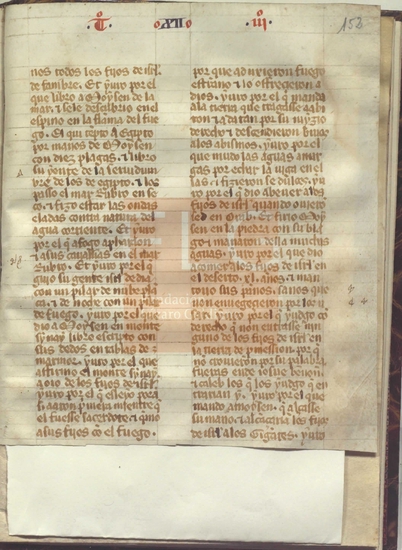 t XII iij 152
nos todos los fijos de isrl.
de fambre. Et yuro por el
que libro a Moysen de la
mar. τ sele descubrio en el
espino en la flama del fue
go. Et qui τ Egipto
por manos de Moysen
con diez plagas. τ libro
su yente de la seruidum
bre de los de egipto. τ los
passo el mar Rubio en se
co. τ fizo estar las ondas
eladas contra natura del
agua corriente. Et yuro
por el q̄ afogo a pharaon
τ asus cauallias en el mar
Rubio. Et yuro por el q̄
guio su gente isrl de dia
con un pilar de nuue
τ de noche con un pilar
de fuego. yuro por el que
dio a Moysen en monte
synay libro escripto con
sus dedos en tablas de
marmor. yuro por el que
el monte synay
a oio de los fijos de isrl.
yuro por el q̄ esleyo pora
si aaron primera mientre q̄
el fuesse sacerdote. τ
asus fijos cō el fuego.
por que aduxieron fuego
estranno τ lo offreçieron a
dios. yuro por el q̄ manda
ala tierra que tragasse
ton τ a datan por su iuyzio
derecho τ descendieron biuos
alos abismos. yuro por el
que mudo las aguas amar
gas por echar la uirga en el
las. τ fizieron se dulces. yu
ro por el q̄ dio a beuer alos
fijos de isrl quando ouiero
sed en Oreb. Et firio Moy
sen en la piedra con su bla
go τ manaron della muchas
aguas. yuro por el que dio
a comer alos fijos de isrl en
el desierto .xl. annos. τ man
touo sus panos sanos que
non enuegeçieron por los u
sar. yuro por el que yudgo cō
derecho q̄ non entrasse nin
guno de los fijos de isrl en
la tierra de promission. por q̄
no crouieron por su palabra
fueras ende iosue benon.
τ caleb los q̄ los yudgo q̄ en
trarian y. yuro por el que
mando amoysen. q̄ alçasse
su mano. τ los fijos
de isrl alos Gigantes. yuro